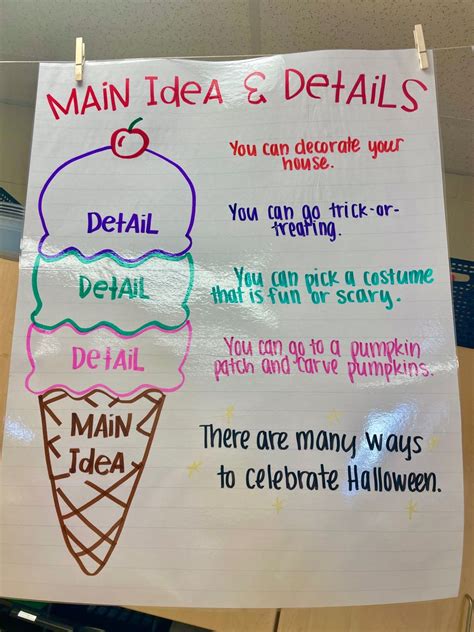 MAIN IdeA & DetAILS
You can decorate your
house.
DetAIL
You can go trick-or-
treating.
DetAIL
You can pick a costume
that is fun or scary.
DetAIL
You can go to a pumpkin
patch and carve pumpkins.
MAIN
IdeA
There are many ways
to celebrate Halloween.